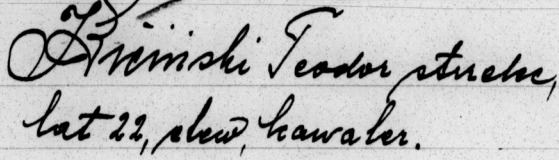 Kiciński Teodor strzelec,
lat 22, kawaler.